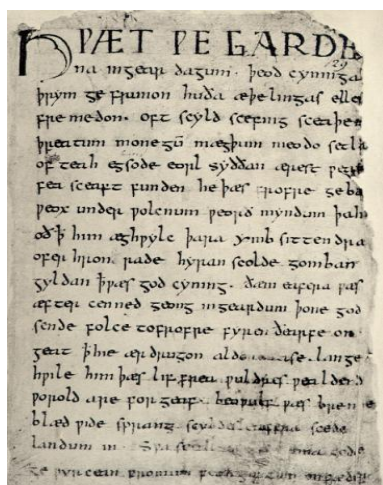 HǷÆT ǷE GARDE
na ingear dagum. þeod cyninga
þrym ge frunon huða æþelingas elle
fre medon. oft scyld scefing sceaþe
þreatum monegū mægþum meodo setla
of teah egsode eorl syððan ærest ƿear
fea sceaft funden he þæs frofre geba
ƿeox under ƿolcnum ƿeorð myndum þah
oð ꝥ him æghƿylc þara ymb sittendra
ofer hron rade hyran scolde gomban
gyldan ꝥ ƿæs god cyning. ðæm eafera ƿæs
æfter cenned geong ingeardum þone god
sende folce tofrofre fyren ðearfe on
geat ꝥ hie ær drugon aldor ase. lange
hƿile him þæs lif frea ƿuldres ƿealdend
ƿorold are for geaf. beoƿulf ƿæs breme
blæd ƿide sprang scyldes eafera scede
landum in. Sƿa gode
ge ƿyrcean fromum